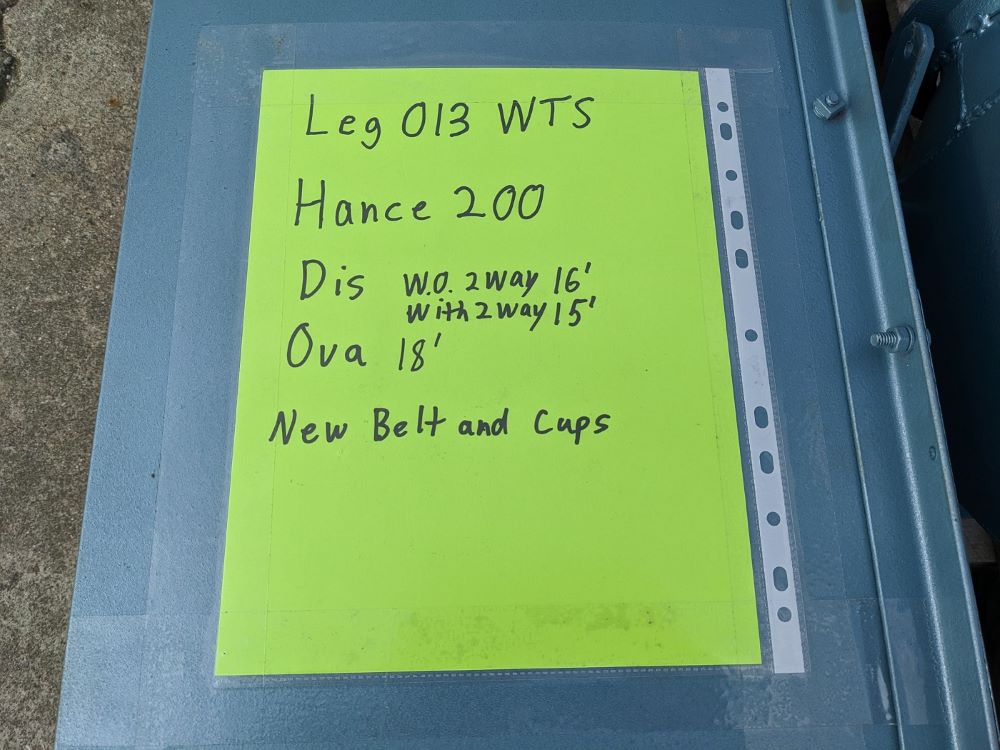 Leg 013 WTS
Hance 200
Dis W.O. 2 way 16'
With 2 way 15'
Ova 18'
New Belt and Cups